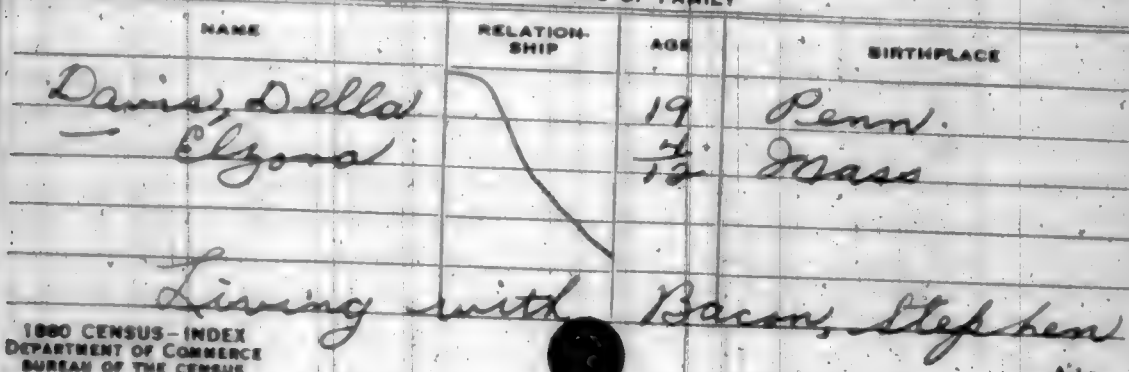 OF FAMILY
NAME RELATION-SHIP AGE BIRTHPLACE
Davis, Della 19 Penn.
— Elzona 4/12 Mass
Living with Bacon, Stephen
1880 CENSUS - INDEX
DEPARTMENT OF COMMERCE
BUREAU OF THE CENSUS